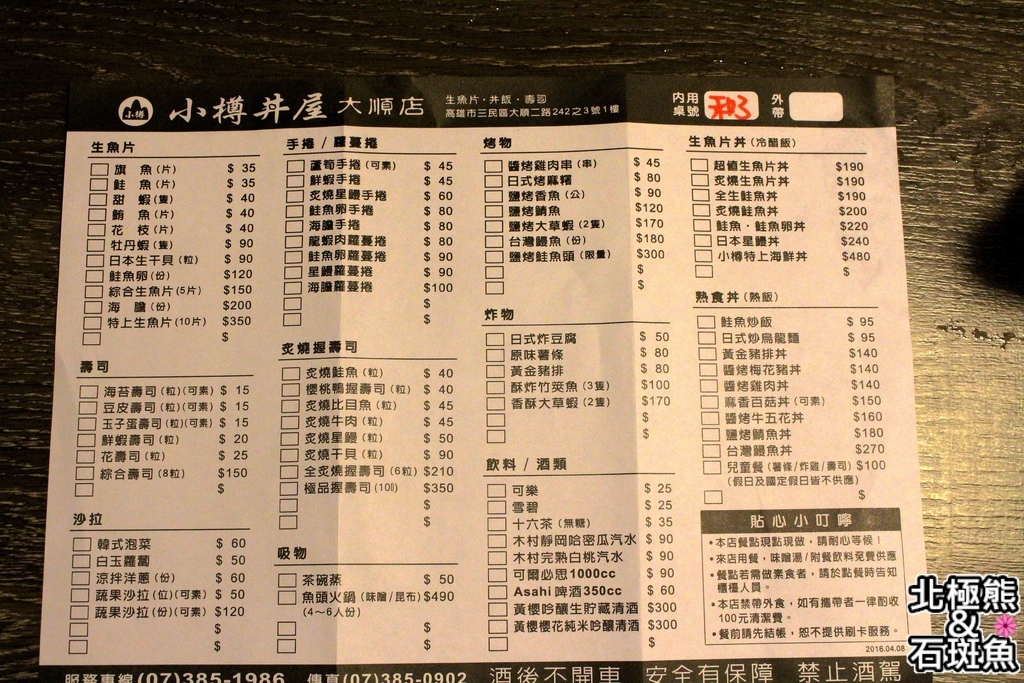 小樽
小樽丼屋 大順店
生魚片・丼飯・壽司
高雄市三民區大順二路242之3號1樓
內用桌號
外帶
生魚片
旗 魚(片) $ 35
鮭 魚(片) $ 35
甜 蝦(隻) $ 40
鮪 魚(片) $ 40
花 枝(片) $ 40
牡丹蝦(隻) $ 90
日本生干貝(粒) $ 90
鮭魚卵(份) $120
綜合生魚片(5片) $150
海 膽(份) $200
特上生魚片(10片) $350
$
壽司
海苔壽司(粒)(可素) $ 15
豆皮壽司(粒)(可素) $ 15
玉子蛋壽司(粒)(可素) $ 15
鮮蝦壽司(粒) $ 20
花壽司(粒) $ 25
綜合壽司(8粒) $150
$
沙拉
韓式泡菜 $ 60
白玉蘿蔔 $ 50
涼拌洋蔥(份) $ 60
蔬果沙拉(位)(可素) $ 50
蔬果沙拉(份)(可素) $120
$
$
手捲/蘿蔓捲
蘆筍手捲(可素) $ 45
鮮蝦手捲 $ 45
炙燒星鰻手捲 $ 60
鮭魚卵手捲 $ 80
海膽手捲 $ 80
龍蝦肉蘿蔓捲 $ 80
鮭魚卵蘿蔓捲 $ 90
星鰻蘿蔓捲 $ 90
海膽蘿蔓捲 $100
$
$
炙燒握壽司
炙燒鮭魚(粒) $ 40
櫻桃鴨握壽司(粒) $ 40
炙燒比目魚(粒) $ 45
炙燒牛肉(粒) $ 45
炙燒星鰻(粒) $ 50
炙燒干貝(粒) $ 90
全炙燒握壽司(6粒) $210
極品握壽司 $350
$
$
吸物
茶碗蒸 $ 50
魚頭火鍋(味噌/昆布) $490
(4~6人份)
$
$
烤物
醬烤雞肉串(串) $ 45
日式烤麻糬 $ 80
鹽烤香魚(公) $ 90
鹽烤鯖魚 $120
鹽烤大草蝦(2隻) $170
台灣鰻魚(份) $180
鹽烤鮭魚頭(限量) $300
$
$
炸物
日式炸豆腐 $ 50
原味薯條 $ 80
黃金豬排 $ 80
酥炸竹筴魚(3隻) $100
香酥大草蝦(2隻) $170
$
$
飲料/酒類
可樂 $ 25
雪碧 $ 25
十六茶(無糖) $ 35
木村靜岡哈密瓜汽水 $ 90
木村完熟白桃汽水 $ 90
可爾必思1000cc $ 90
Asahi 啤酒350cc $ 60
黃櫻吟釀生貯藏清酒 $300
黃櫻櫻花純米吟釀清酒 $300
$
生魚片丼(冷醋飯)
超值生魚片丼 $190
炙燒生魚片丼 $190
全生鮭魚丼 $190
炙燒鮭魚丼 $200
鮭魚・鮭魚卵丼 $220
日本星鰻丼 $240
小樽特上海鮮丼 $480
$
熟食丼(熱飯)
鮭魚炒飯 $ 95
日式炒烏龍麵 $ 95
黃金豬排丼 $140
醬烤梅花豬丼 $140
醬烤雞肉丼 $140
麻香百菇丼(可素) $150
醬烤牛五花丼 $160
鹽烤鯖魚丼 $180
台灣鰻魚丼 $270
兒童餐(薯條/炸雞/壽司) $100
(假日及國定假日皆不供應)
$
貼心小叮嚀
•本店餐點現點現做，請耐心等候！
•來店用餐，味噌湯/附餐飲料免費供應
•餐點若需做素食者，請於點餐時告知
櫃檯人員。
•本店禁帶外食，如有攜帶者一律酌收
100元清潔費。
•餐前請先結帳，恕不提供刷卡服務。
2016.04.08
服務專線(07)385-1986 傳真(07)385-0902 酒後不開車 安全有保障 禁止酒駕
北極熊
&
石斑魚